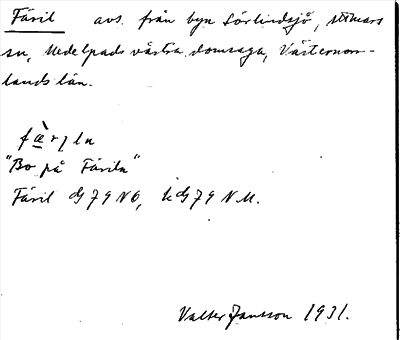 Färil avs. från byn Sörlindsjö, Attmars
sn, Medelpads västra domsaga, Västernorr-
lands län.
færịln
"Bo på Färiln"
Färil dJ 79 NO, hdJ 79 N.M.
Valter Jansson 1931.